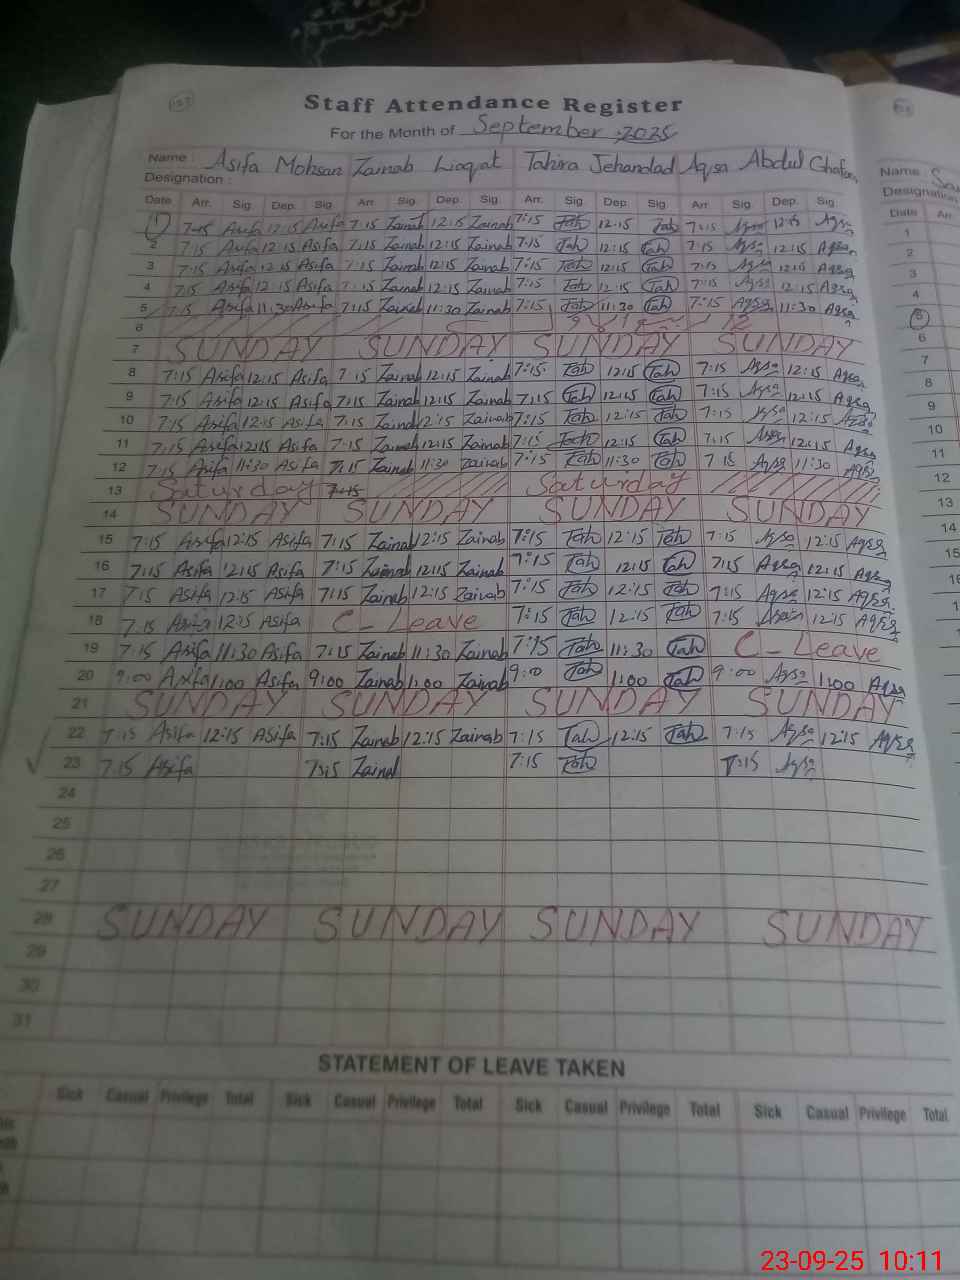 Staff Attendance Register
For the Month of September 2025
Name : Asifa Mohsan Zainab Liaqat Tahira Jehandad Aqsa Abdul Ghafoor
Designation :
Date Arr. Sig. Dep. Sig. Arr. Sig. Dep. Sig. Arr. Sig. Dep. Sig. Arr. Sig. Dep. Sig.
1 7:15 Asifa 12:15 Asifa 7:15 Zainab 12:15 Zainab 7:15 Tah 12:15 Tah 7:15 Aqsa 12:15 Aqsa
2 7:15 Asifa 12:15 Asifa 7:15 Zainab 12:15 Zainab 7:15 Tah 12:15 Tah 7:15 Aqsa 12:15 Aqsa
3 7:15 Asifa 12:15 Asifa 7:15 Zainab 12:15 Zainab 7:15 Tah 12:15 Tah 7:15 Aqsa 12:15 Aqsa
4 7:15 Asifa 12:15 Asifa 7:15 Zainab 12:15 Zainab 7:15 Tah 12:15 Tah 7:15 Aqsa 12:15 Aqsa
5 7:15 Asifa 11:30 Asifa 7:15 Zainab 11:30 Zainab 7:15 Tah 11:30 Tah 7:15 Aqsa 11:30 Aqsa
6
7 SUNDAY SUNDAY SUNDAY SUNDAY
8 7:15 Asifa 12:15 Asifa 7:15 Zainab 12:15 Zainab 7:15 Tah 12:15 Tah 7:15 Aqsa 12:15 Aqsa
9 7:15 Asifa 12:15 Asifa 7:15 Zainab 12:15 Zainab 7:15 Tah 12:15 Tah 7:15 Aqsa 12:15 Aqsa
10 7:15 Asifa 12:15 Asifa 7:15 Zainab 12:15 Zainab 7:15 Tah 12:15 Tah 7:15 Aqsa 12:15 Aqsa
11 7:15 Asifa 12:15 Asifa 7:15 Zainab 12:15 Zainab 7:15 Tah 12:15 Tah 7:15 Aqsa 12:15 Aqsa
12 7:15 Asifa 11:30 Asifa 7:15 Zainab 11:30 Zainab 7:15 Tah 11:30 Tah 7:15 Aqsa 11:30 Aqsa
13 Saturday 7:15 Saturday
14 SUNDAY SUNDAY SUNDAY SUNDAY
15 7:15 Asifa 12:15 Asifa 7:15 Zainab 12:15 Zainab 7:15 Tah 12:15 Tah 7:15 Aqsa 12:15 Aqsa
16 7:15 Asifa 12:15 Asifa 7:15 Zainab 12:15 Zainab 7:15 Tah 12:15 Tah 7:15 Aqsa 12:15 Aqsa
17 7:15 Asifa 12:15 Asifa 7:15 Zainab 12:15 Zainab 7:15 Tah 12:15 Tah 7:15 Aqsa 12:15 Aqsa
18 7:15 Asifa 12:15 Asifa C- Leave 7:15 Tah 12:15 Tah 7:15 Aqsa 12:15 Aqsa
19 7:15 Asifa 11:30 Asifa 7:15 Zainab 11:30 Zainab 7:15 Tah 11:30 Tah C- Leave
20 9:00 Asifa 1:00 Asifa 9:00 Zainab 1:00 Zainab 9:00 Tah 1:00 Tah 9:00 Aqsa 1:00 Aqsa
21 SUNDAY SUNDAY SUNDAY SUNDAY
22 7:15 Asifa 12:15 Asifa 7:15 Zainab 12:15 Zainab 7:15 Tah 12:15 Tah 7:15 Aqsa 12:15 Aqsa
23 7:15 Asifa 7:15 Zainab 7:15 Tah 7:15 Aqsa
24
25
26
27
28 SUNDAY SUNDAY SUNDAY SUNDAY
29
30
31
STATEMENT OF LEAVE TAKEN
Sick Casual Privilege Total Sick Casual Privilege Total Sick Casual Privilege Total Sick Casual Privilege Total
Name :
Designation
Date Arr.
1
2
3
4
5
6
7
8
9
10
11
12
13
14
15
23-09-25 10:11